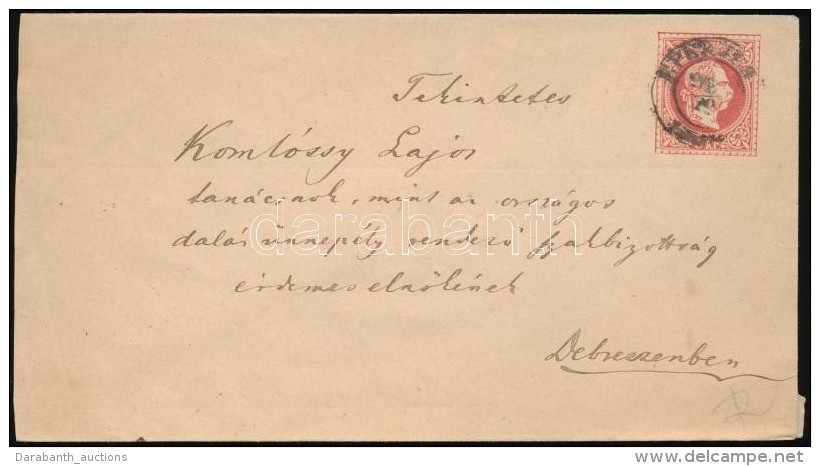 EPERJES
Tekintetes
Komlóssy Lajos
tanácsnok, mint az országos
dalár ünnepély rendező szakbizottság
érdemes elnökének
Debreczenben
darabanth
Darabanth_auctions
delcampe.net